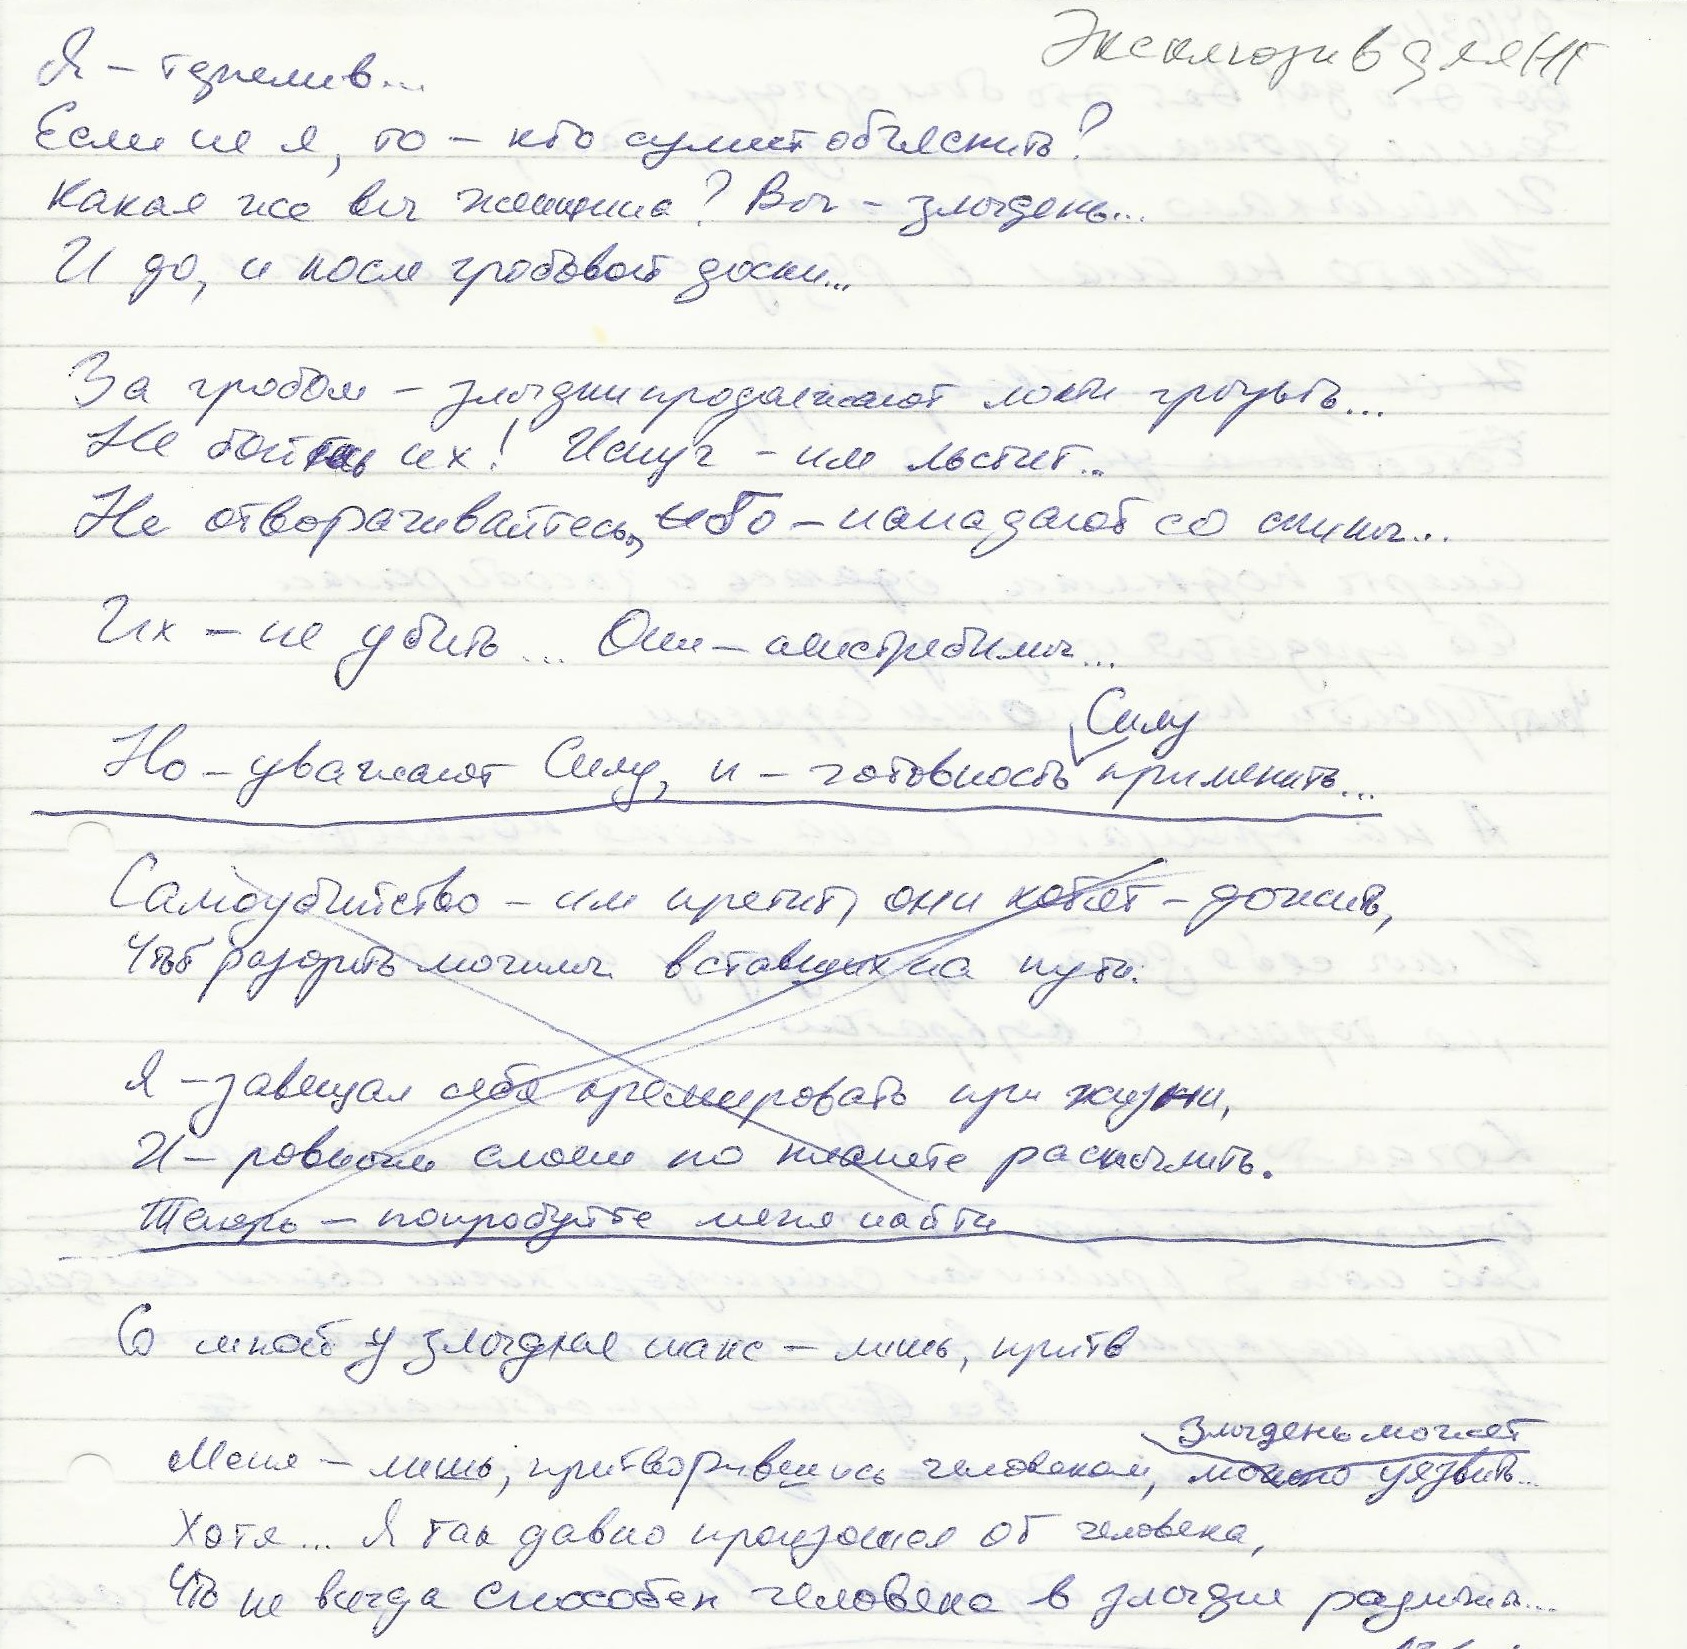 Эксклюзив для НГ
Я – терпелив...
Если не я, то – кто сумеет объяснить?
Какая же вы женщина? Вы – злыдень...
И до, и после гробовой доски...
За гробом – злыдни продолжают локти грызть...
Не бойтесь их! Испуг – им льстит...
Не отворачивайтесь, ибо – нападают со спины...
Их – не убить... Они – неистребимы...
Силу
Но – уважают Силу, и – готовность применить...
Самоубийство – им претит, они хотят – дожить,
Чтоб разорить могилы вставших на пути.
Я – завещал себя кремировать при жизни,
И – ровным слоем по планете распылить.
Теперь – попробуйте меня найти
Со мной у злыдня шанс – лишь, притв
злыдень может
Меня – лишь, притворившись человеком, можно уязвить...
Хотя... Я так давно произошёл от человека,
Что не всегда способен человека в злыдне различить...